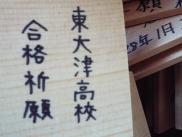 東大津高校
合格祈願
願
28年1月